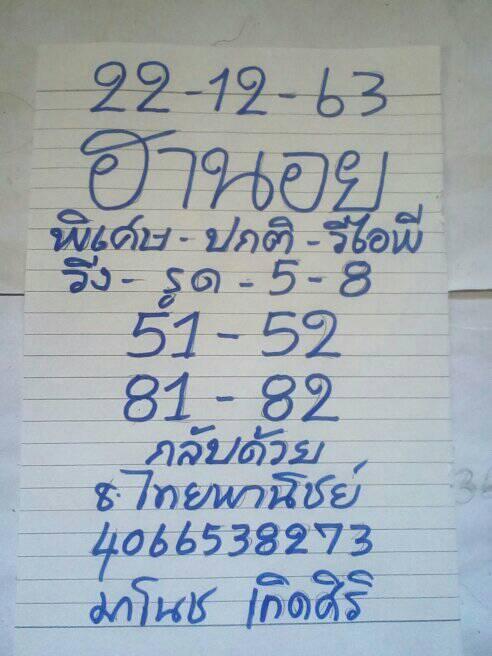 22-12-63
ฮานอย
พิเศษ - ปกติ - วีไอพี
วิ่ง - รูด - 5 - 8
51 - 52
81 - 82
กลับด้วย
ธ.ไทยพานิชย์
4066538273
มาโนช เกิดศิริ